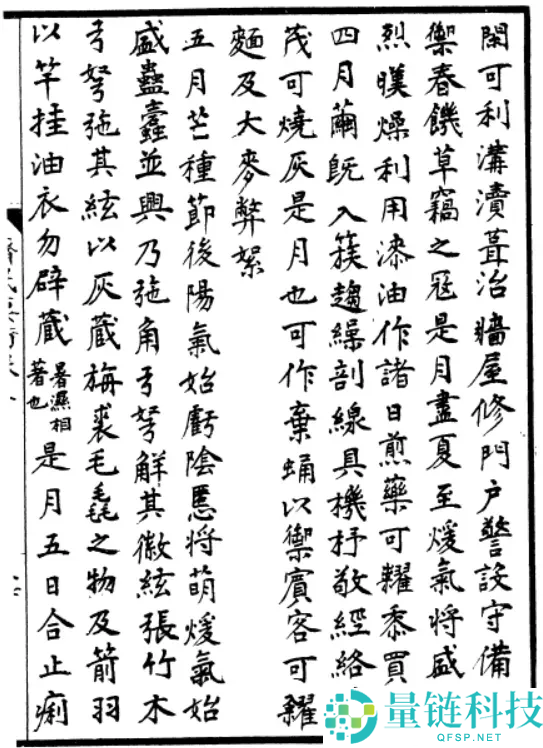 閑可利溝瀆葺治牆屋修門户警設守備
禦春饑草竊之冦是月盡夏至煖氣將盛
烈暵燥利用漆油作諸日煎藥可糶黍買
四月繭旣入簇趨繰剖線具機杼敬經絡
茂可燒灰是月也可作棄蛹以禦賓客可糴
麵及大麥弊絮
五月芒種節後陽氣始虧陰慝将萌煖氣始
盛蠱蠹並興乃弛角弓弩解其徽絃張竹木
弓弩弛其絃以灰蔵旃裘毛毳之物及箭羽
以竿挂油衣勿辟蔵暑濕相著也是月五日合止痢
量链科技
QFSP.NET